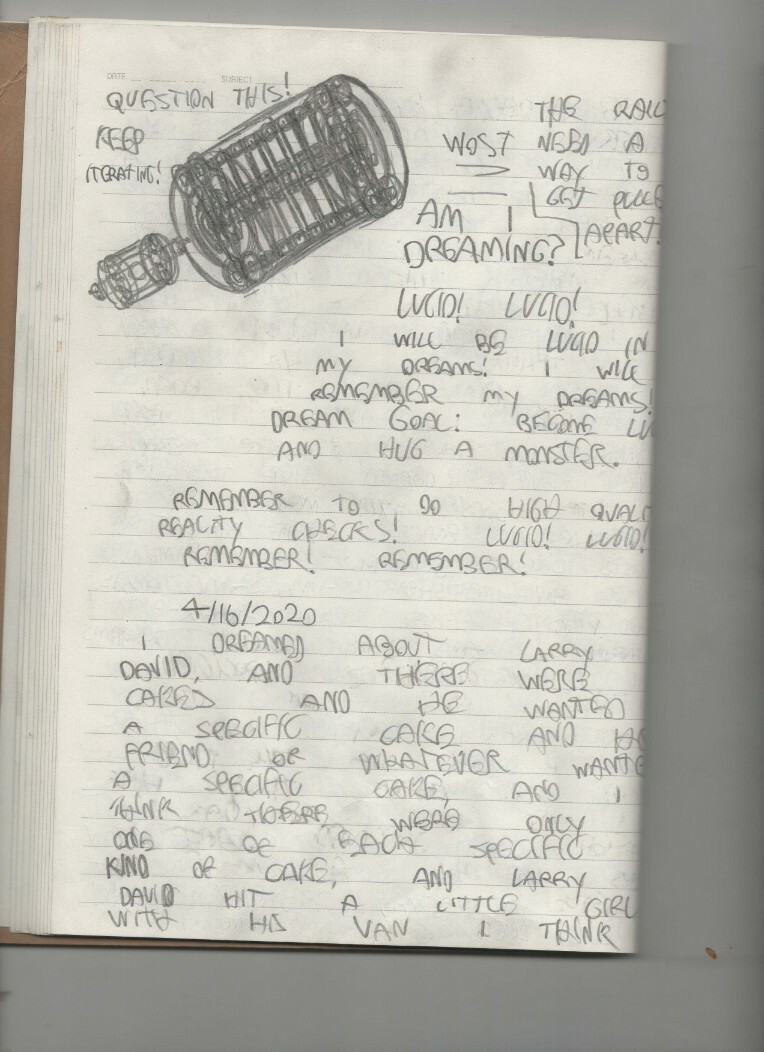 DATE SUBJECT
QUESTION THIS!
KEEP
ITERATING!
THE
MOST NEED A
WAY TO
GET
APART!
AM I
DREAMING?
LUCID! LUCID!
I WILL BE LUCID IN
MY DREAMS! I WILL
REMEMBER MY DREAMS!
DREAM GOAL: BECOME LU
AND HUG A MONSTER.
REMEMBER TO DO HIGH QUALI
REALITY CHECKS! LUCID! LUCID!
REMEMBER! REMEMBER!
4/16/2020
I DREAMED ABOUT LARRY
DAVID, AND THERE WERE
CAKES AND HE WANTED
A SPECIFIC CAKE AND
FRIEND OR WHATEVER WANTE
A SPECIFIC CAKE, AND I
THINK THERE WERE ONLY
ONE OF EACH SPECIFIC
KIND OF CAKE, AND LARRY
DAVID HIT A LITTLE GIRL
WITH HIS VAN I THINK